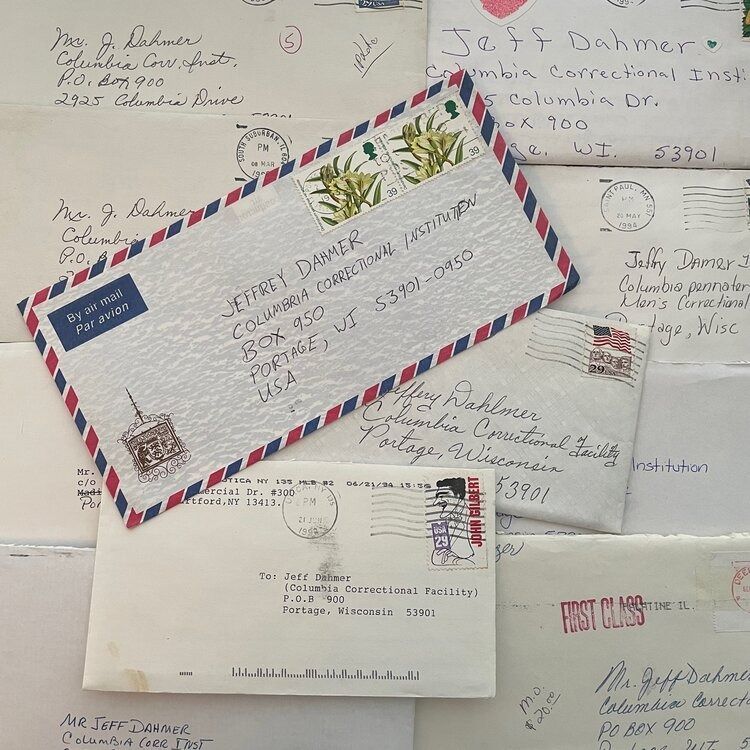 Mr. J. Dahmer
Columbia Corr. Inst.
P.O. Box 900
2925 Columbia Drive
5
Jeff Dahmer
Columbia Correctional Insti
5 Columbia Dr.
Box 900
ge, WI. 53901
Mr. J. Dahmer
Columbia
SOUTH SUBURBAN, IL
PM
08 MAR
39
39
By air mail
Par avion
JEFFREY DAHMER
COLUMBIA CORRECTIONAL INSTITUTION
BOX 950
PORTAGE, WI 53901-0950
USA
SAINT PAUL, MN
PM
20 MAY
1994
Jeffry Damer
Columbia pennater
Men's Correctional
Portage, Wisc
29 USA
Jeffery Dahlmer
Columbia Correctional Facility
Portage, Wisconsin
53901
Institution
Mr.
c/o
Madi
Por
UTICA NY 135 MLB #2 06/21/94 15:56
ercial Dr. #300
rtford,NY 13413.
PM
21 JUN
USA
29
JOHN GILBERT
To: Jeff Dahmer
(Columbia Correctional Facility)
P.O.B 900
Portage, Wisconsin 53901
FIRST CLASS
PALATINE IL
M.O.
$20.00
Mr. Jeff Dahmer
Columbia Correct
PO BOX 900
MR JEFF DAHMER
COLUMBIA CORR INST